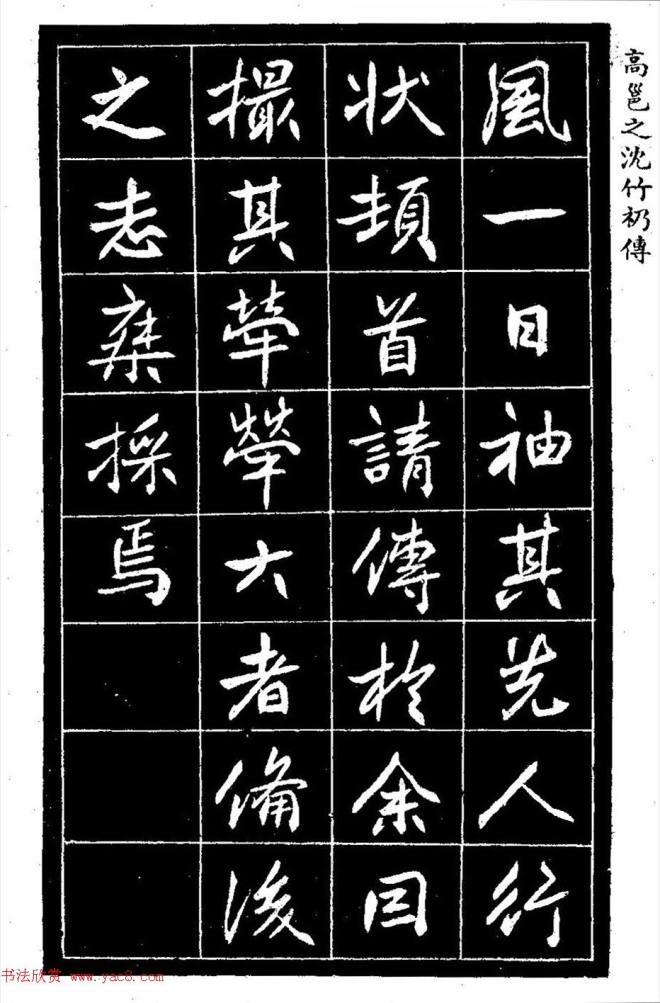 高邕之沈竹礽傳
風一日袖其先人行
狀頓首請傳於余因
撮其犖犖大者備後
之志乘採焉
书法欣赏 www.yac8.com